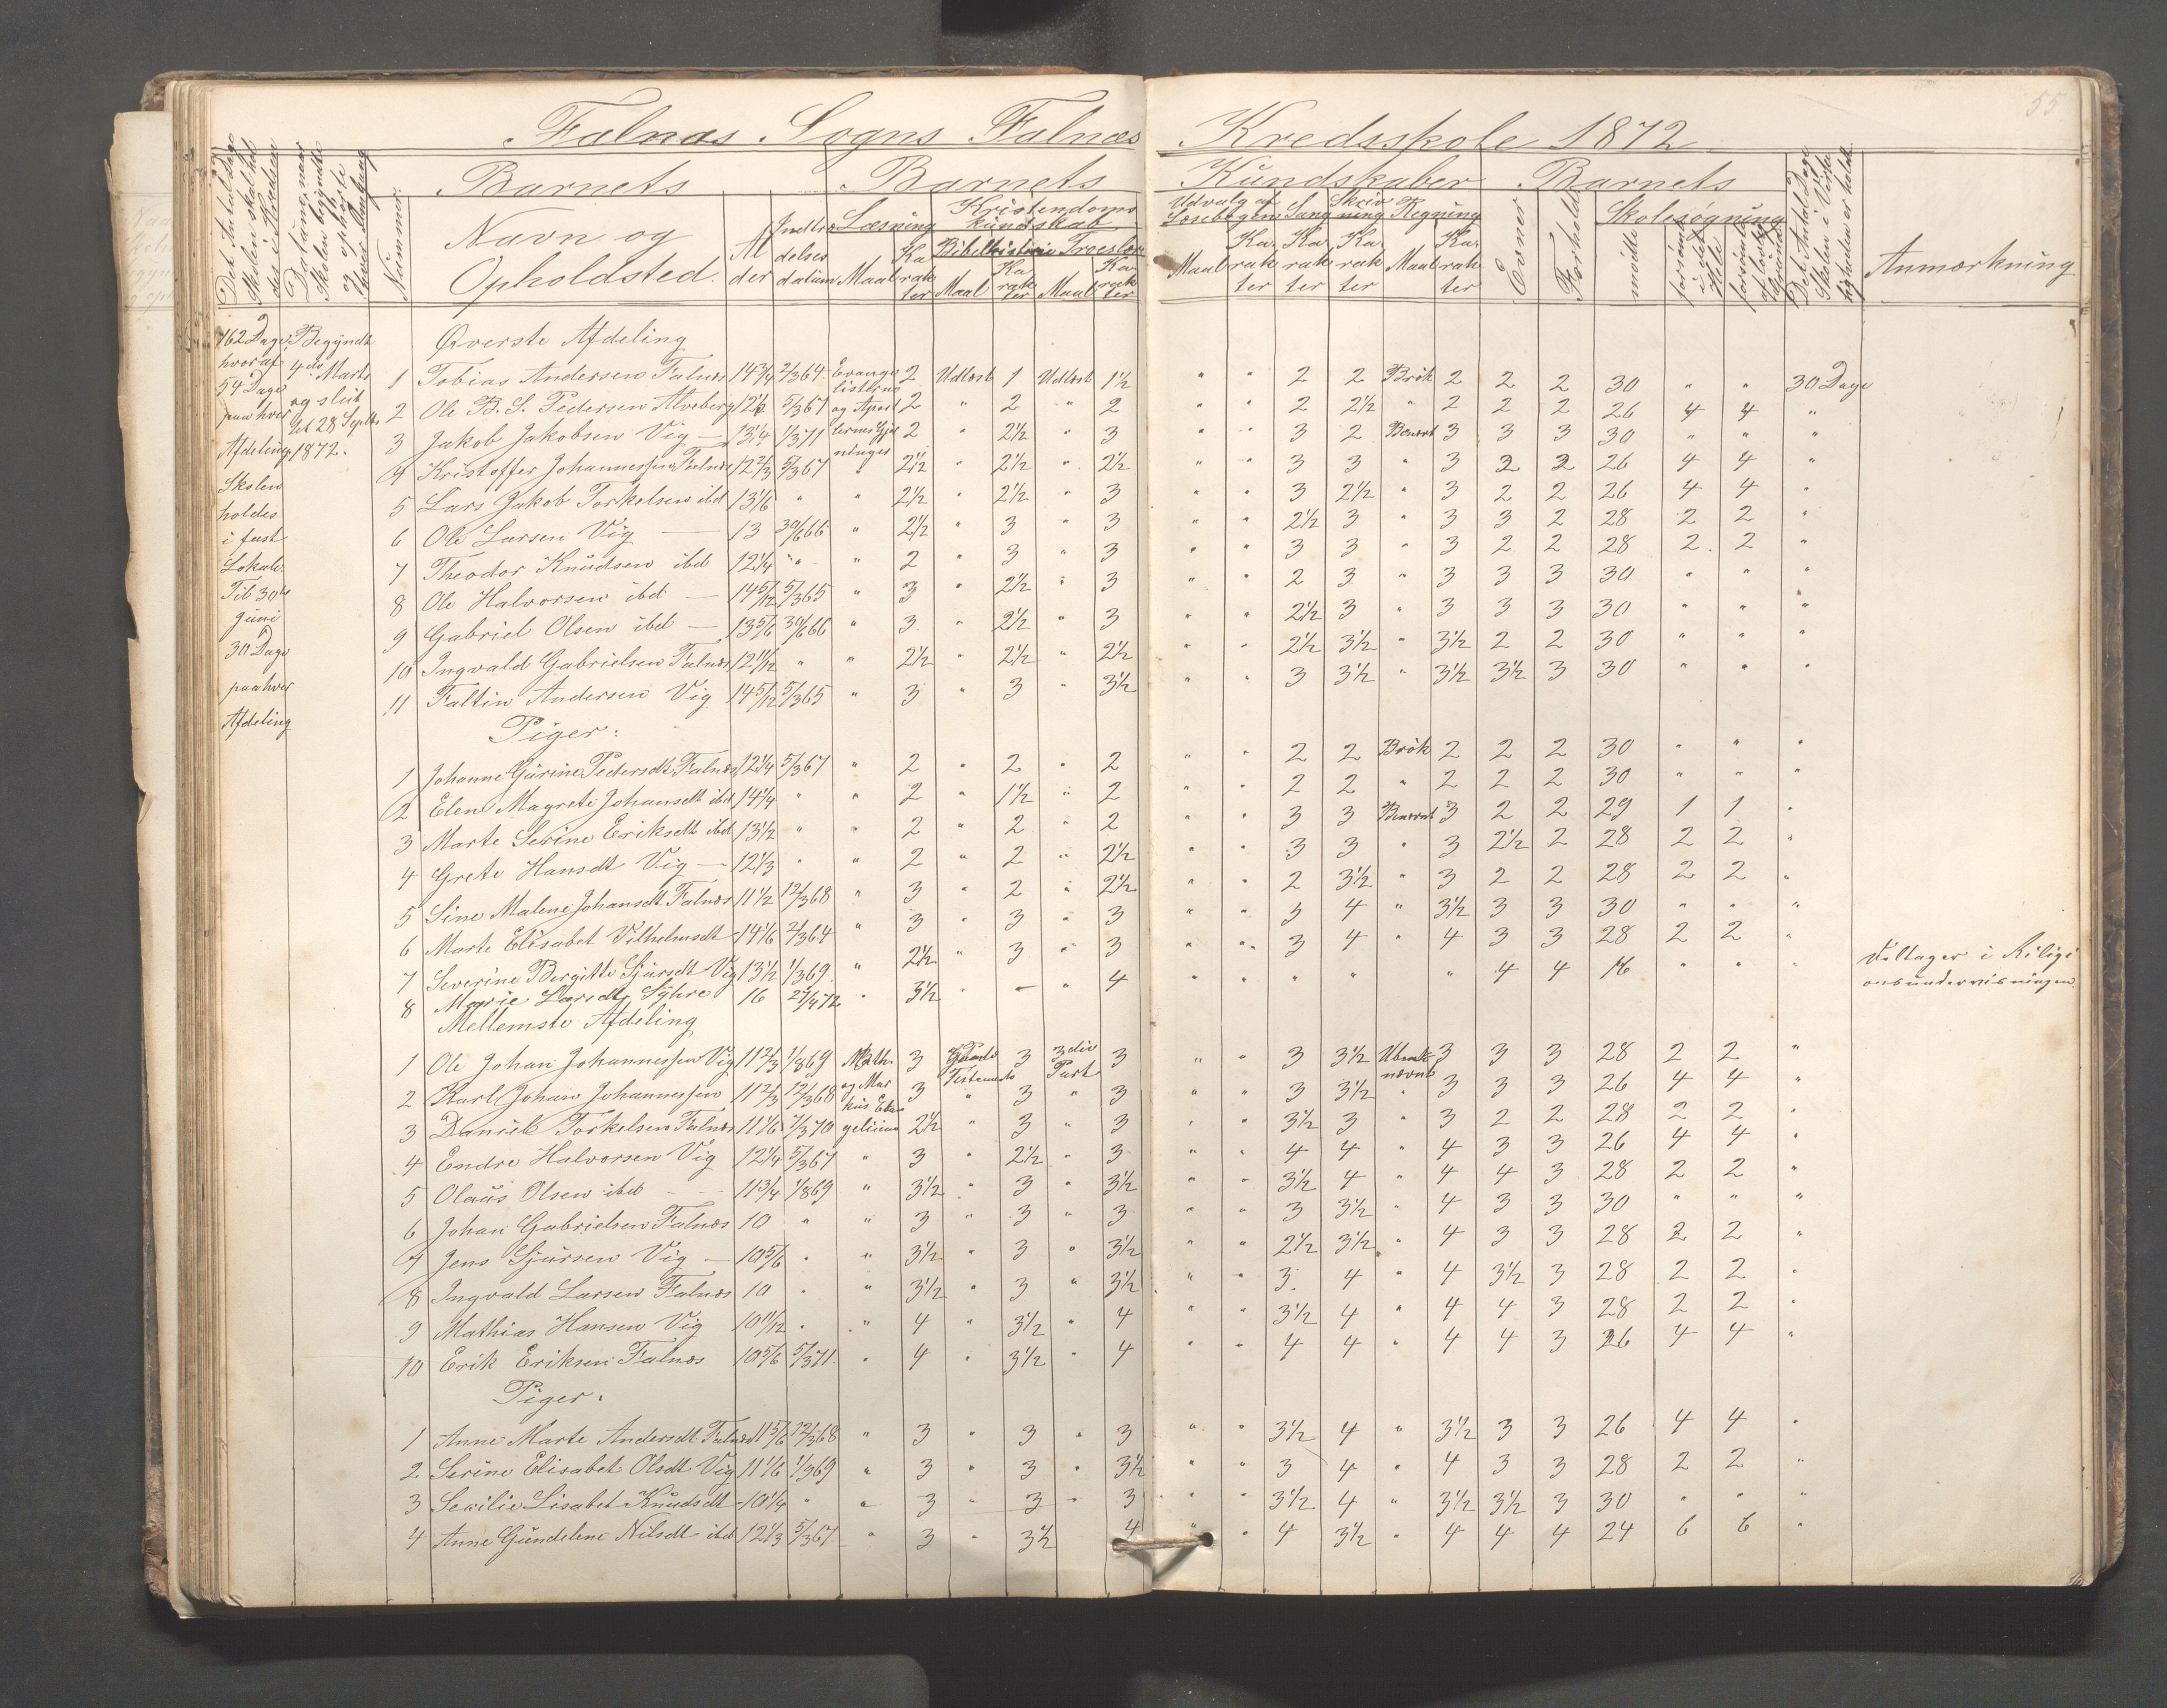 55
Falnæs Sogns Falnæs Kredsskole 1872
Det Antal Dage Skolen skal holdes i Kredsen
Datum, naar Skolen begyndte og ophørte
Nummer.
Barnets
Navn og Opholdsted.
Alder
Indtrædelsesdatum
Barnets Kundskaber
Læsning
Maal
Karakter
Kristendomskundskab
Bibelhistorie
Maal
Karakter
Troeslære
Maal
Karakter
Udvalg af Læsebogen
Maal
Karakter
Sang
Karakter
Skrivning
Karakter
Regning
Maal
Karakter
Barnets
Evner
Forhold
Skolesøgning
mødte
forsømte i det Hele
forsømte af lovlig Grund
Det Antal Dage Skolen i Virkeligheden er holdt.
Anmærkning
162 Dage, hvoraf 54 Dage paa hver Afdeling. Skolen holdes i fast Lokale. Til 30te Juni 30 Dage paa hver Afdeling
Begyndt 4de Marts og slut det 28 Septbr 1872.
Øverste Afdeling
1 Tobias Andersen Falnæs 14 3/4 2/3 64 Evangelisterne og Apostlernes Gjerninger 2 Udlæst 1 Udlæst 1½ " " 2 2 Brök 2 2 2 30 " " 30 Dage
2 Ole B. S. Pedersen Alveberg 12½ 5/3 67 2 " 2 " 2 " " 2 2½ " 2 2 2 26 4 4 "
3 Jakob Jakobsen Vig — 13¼ 1/3 71 2 " 2½ " 3 " " 3 2 Benævnt 3 3 3 30 " " "
4 Kristoffer Johannessen Falnæs 12 2/3 5/3 67 " 2½ " 2½ " 2½ " " 3 3 " 3 2 2 26 4 4 "
5 Lars Jakob Torkelsen ibd 13 1/6 " " 2½ " 2½ " 3 " " 3 2½ " 3 2 2 26 4 4 "
6 Ole Larsen Vig — 13 30/6 66 " 2½ " 3 " 3 " " 2½ 3 " 3 3 2 28 2 2 "
7 Theodor Knudsen ibd 12¼ " " 2 " 3 " 3 " " 3 3 " 3 2 2 28 2 2 "
8 Ole Halvorsen ibd — 14 5/12 5/3 65 " 3 " 2½ " 3 " " 2 3 " 3 3 3 30 " " "
9 Gabriel Olsen ibd — 13 5/6 30/6 66 " 3 " 2½ " 3 " " 2½ 3 " 3 3 3 30 " " "
10 Ingvald Gabrielsen Falnæs 12 11/12 " " 2½ " 2½ " 2½ " " 2½ 3½ " 3½ 2 2 30 " " "
11 Faltin Andersen Vig 14 5/12 5/3 65 " 3 " 3 " 3½ " " 3 3½ " 3½ 3½ 3 30 " " "
Piger:
1 Johanne Gurine Pedersdt Falnæs 12¼ 5/3 67 " 2 " 2 " 2 " " 2 2 Brök 2 2 2 30 " " "
2 Elen Magrete Johansdt ibd 14¼ " " 2 " 1½ " 2 " " 2 2 " 2 2 2 30 " " "
3 Marte Serine Eriksdt ibd 13½ " " 2 " 2 " 2 " " 3 3 Benævnt 3 2 2 29 1 1 "
4 Grete Hansdt Vig — 12 1/3 " " 2 " 2 " 2½ " " 3 3 " 3 2½ 2 28 2 2 "
5 Sine Malene Johansdt Falnæs 11½ 12/3 68 " 3 " 2 " 2½ " " 2 3½ " 3 2 2 28 2 2 "
6 Marte Elisabet Vilhelmsdt 14 1/6 2/3 64 " 3 " 3 " 3 " " 3 4 " 3½ 3 3 30 " " "
7 Severine Bergitte Sjursdt Vig 13½ 1/3 69 " 2½ " 3 " 3 " " 3 4 " 4 3 3 28 2 2 "
8 Marie Larsdt Syhre 16 27/4 72 " 3½ " — " 4 " " " " " 4 4 16 " " " Deltager i Religionsundervisningen.
Mellemste Afdeling
1 Ole Johan Johannessen Vig 11 2/3 1/8 69 Math. og Markus Evangelium 3 Gamle Testamente 3 3die Part 3 " " 3 3½ Ubenævnt 3 3 3 28 2 2 "
2 Karl Johan Johannessen 11 2/3 12/3 68 3 " 3 " 3 " " 3 3½ " 3 3 3 26 4 4 "
3 Daniel Torkelsen Falnæs 11 1/6 1/3 70 2½ " 3 " 3 " " 3½ 3 " 3 2 2 28 2 2 "
4 Endre Halvorsen Vig 12¼ 5/3 67 " 3 " 2½ " 3 " " 4 4 " 4 3 3 26 4 4 "
5 Olaus Olsen ibd 11¾ 1/8 69 " 3½ " 3 " 3½ " " 3½ 4 " 4 4 3 28 2 2 "
6 Johan Gabrielsen Falnæs 10 " " 3 " 3 " 3 " " 3 3½ " 4 3 3 30 " " "
7 Jens Sjursen Vig — 10 5/6 " " 3½ " 3 " 3½ " " 2½ 3½ " 4 3 3 28 2 2 "
8 Ingvald Larsen Falnæs 10 " " 3½ " 3 " 3½ " " 3 4 " 4 3½ 3 28 2 2 "
9 Mathias Hansen Vig 10 11/12 " " 4 " 3½ " 4 " " 3½ 4 " 4 4 3 28 2 2 "
10 Erik Eriksen Falnæs 10 5/6 5/3 71 " 4 " 3½ " 4 " " 4 4 " 4 4 3 26 4 4 "
Piger.
1 Anne Marte Andersdt Falnæs 11 5/6 12/3 68 " 3 " 3 " 3 " " 3½ 4 " 3½ 3 3 26 4 4 "
2 Serine Elisabet Olsdt Vig 11 1/6 1/3 69 " 3 " 3 " 3½ " " 3 4 " 4 3 3 28 2 2 "
3 Secilie Lisabet Knudsdt 10¼ " " 3 " 3 " 3 " " 3½ 4 " 3½ 3½ 3 30 " " "
4 Anne Gundelene Nilsdt ibd 12 1/3 5/3 67 " 3 " 3½ 4 " " 4 3½ " 4 4 4 24 6 6 "